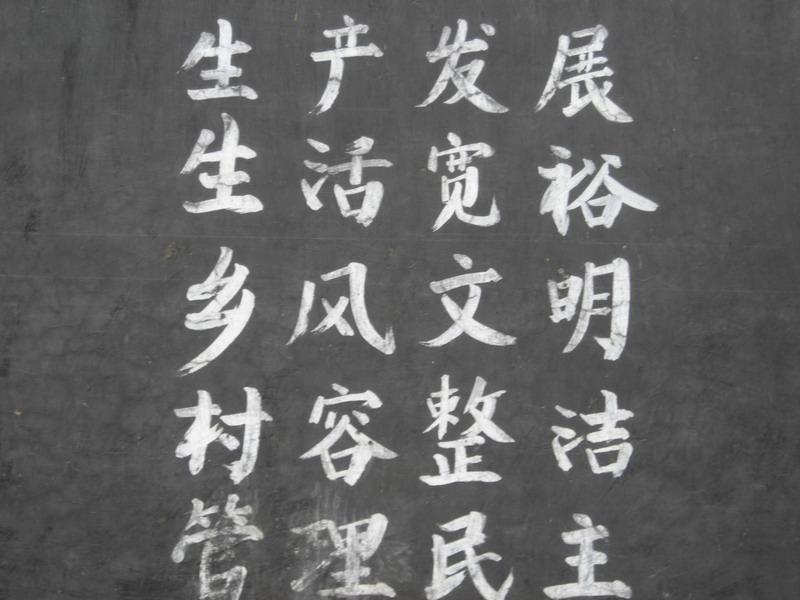 生产发展
生活宽裕
乡风文明
村容整洁
管理民主